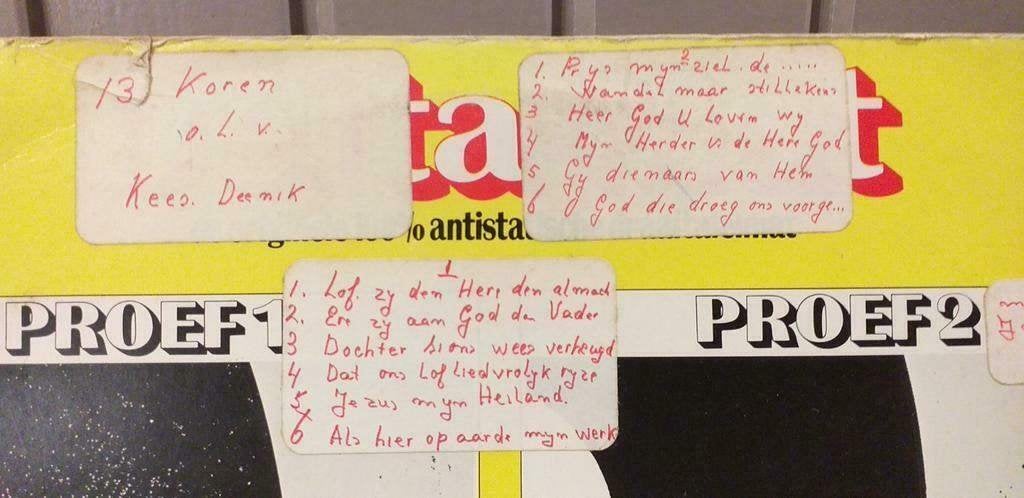 13 Koren
o. L. v.
Kees. Deenik
2
1. Prys myn ziel de .....
2. Wandel maar stillekens
3 Heer God U Loven wy
4 Myn Herder is de Here God
5 Gy dienaars van Hem
6 O God die droeg ons voorge...
ta
t
% antista
1
1. Lof zy den Here den almach
2. Ere zy aan God de Vader
3 Dochter Sions wees verheugd
4 Dat ons Lof Liedvrolyk ryze
5 Jezus myn Heiland.
6 Als hier op aarde myn werk
PROEF 1
PROEF 2